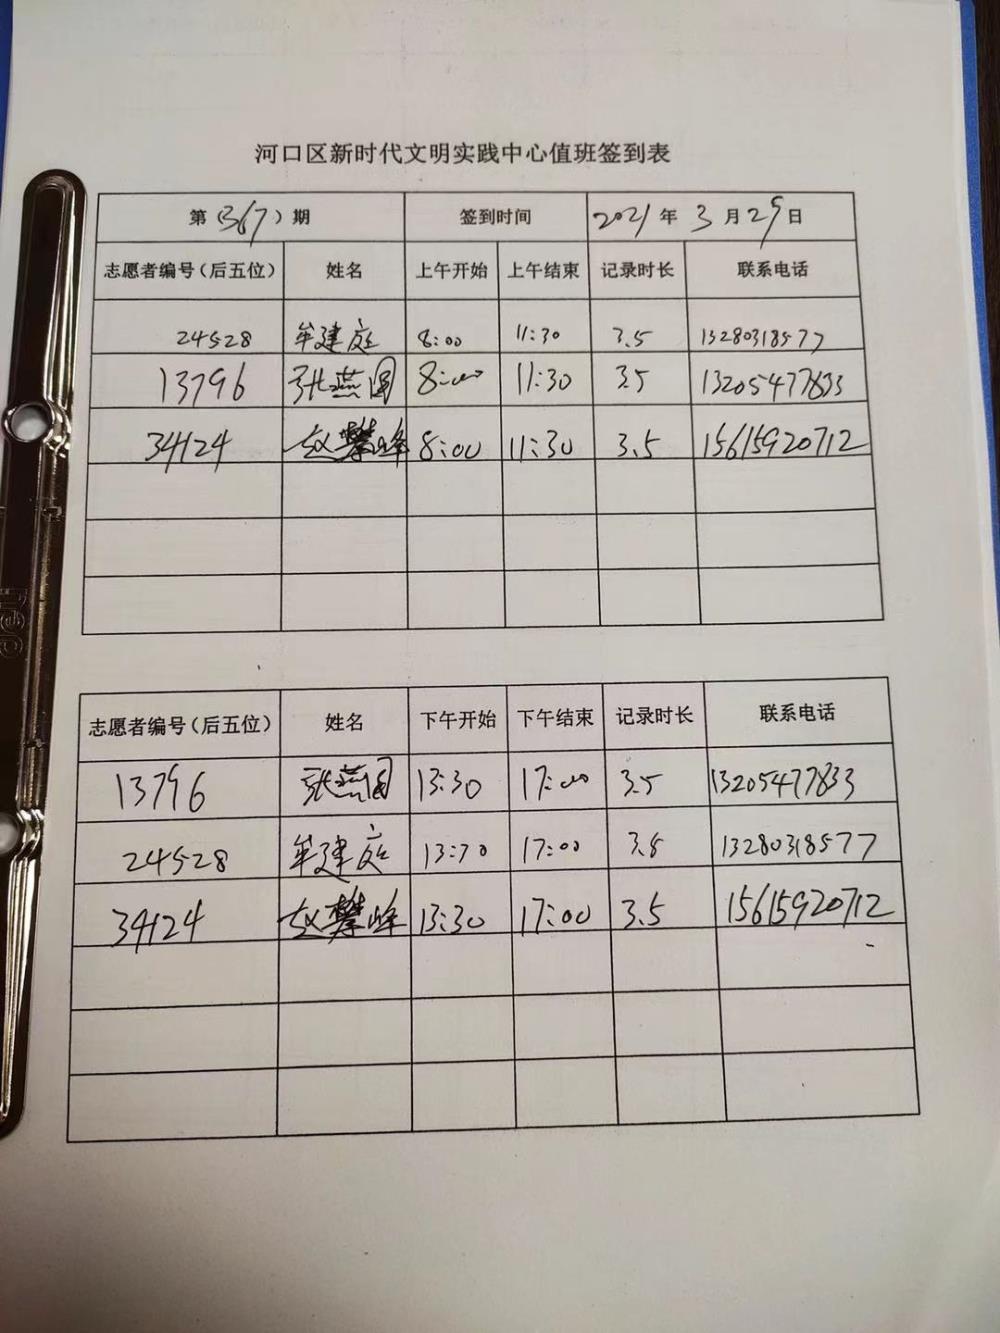 河口区新时代文明实践中心值班签到表
第（367）期 签到时间 2021年3月29日
志愿者编号（后五位） 姓名 上午开始 上午结束 记录时长 联系电话
24528 牟建庭 8:00 11:30 3.5 13280318577
13796 张燕圆 8:00 11:30 3.5 13205477833
34124 赵攀峰 8:00 11:30 3.5 15615920712
志愿者编号（后五位） 姓名 下午开始 下午结束 记录时长 联系电话
13796 张燕圆 13:30 17:00 3.5 13205477833
24528 牟建庭 13:30 17:00 3.5 13280318577
34124 赵攀峰 13:30 17:00 3.5 15615920712